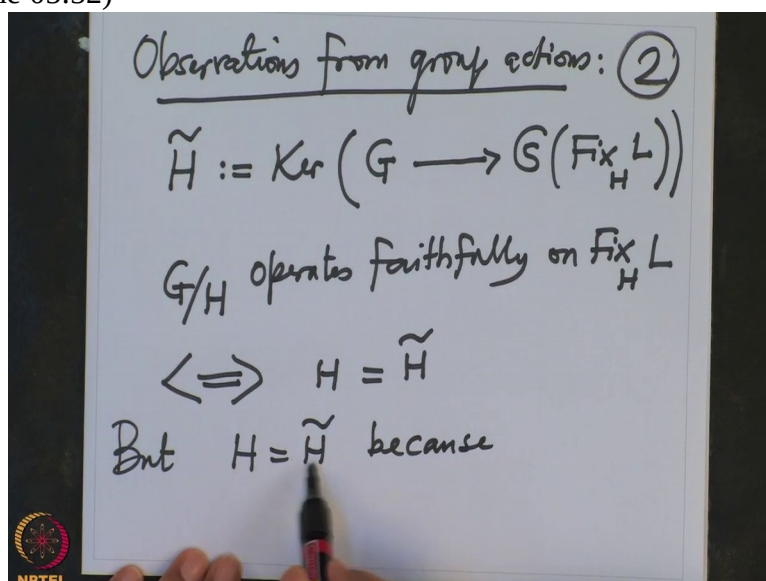 Observations from group actions: ②
H̃ := Ker (G ⟶ 𝔖(Fix_H L))
G/H operates faithfully on Fix_H L
<=> H = H̃
But H = H̃ because
NPTEL